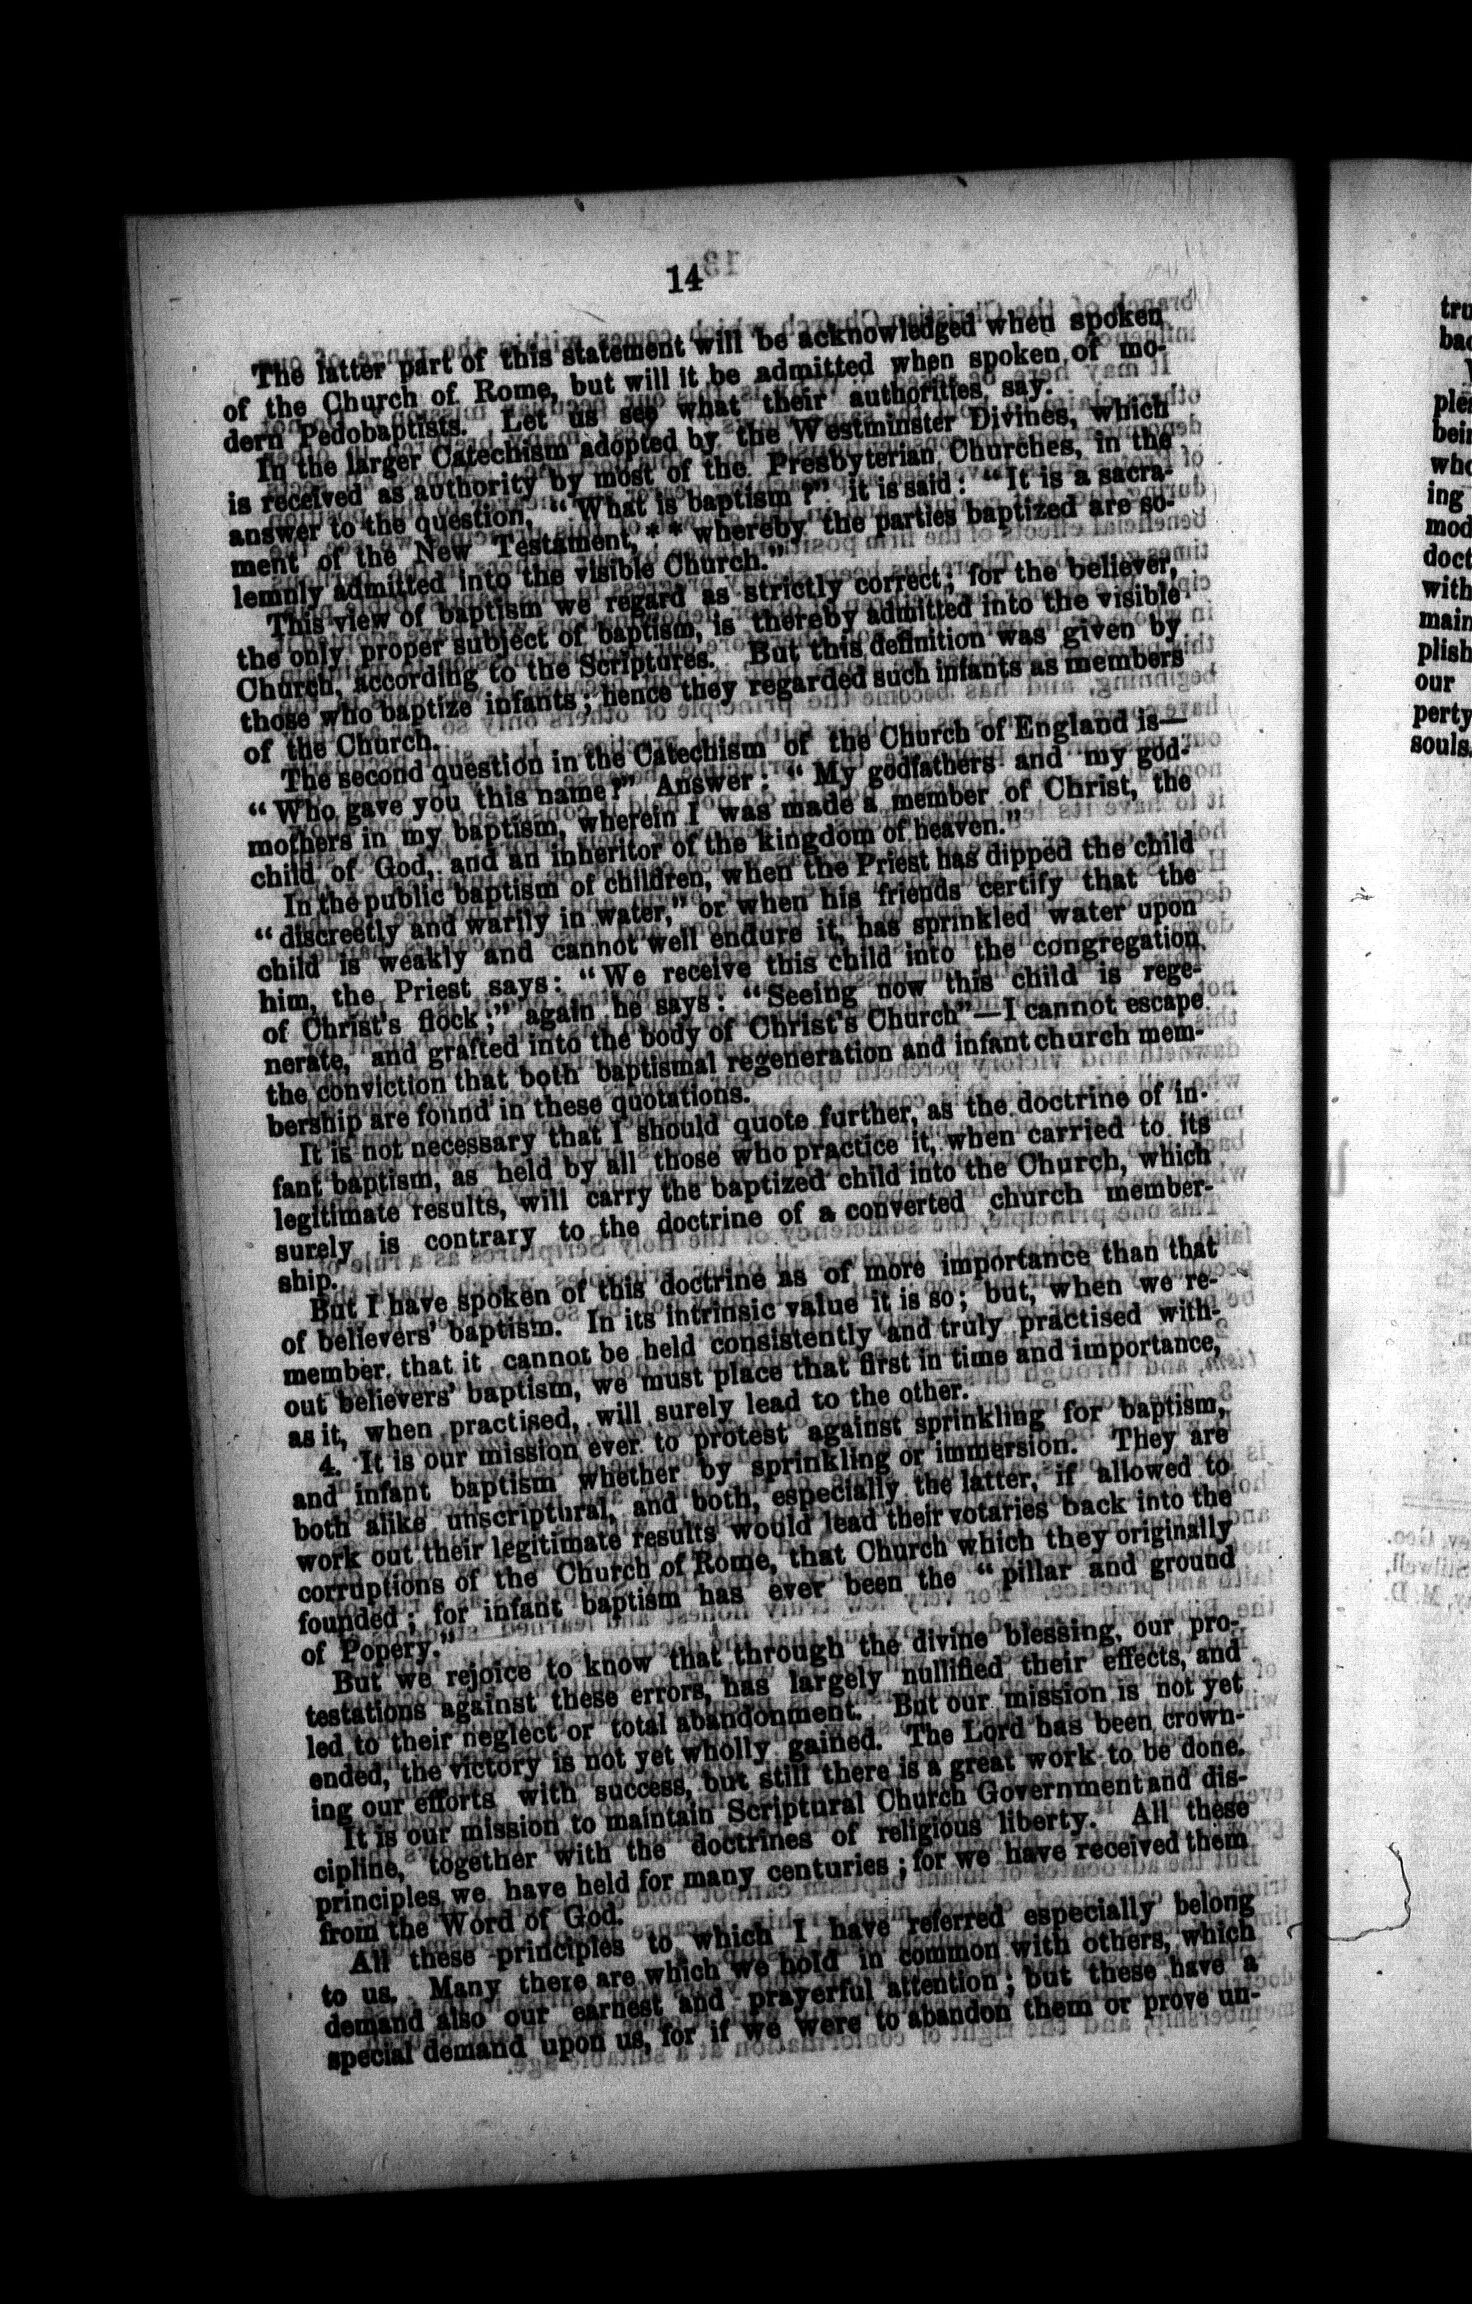 14
The latter part of this statement will be acknowledged when spoken
of the Church of Rome, but will it be admitted when spoken of mo-
dern Pedobaptists. Let us see what their authorities say.
In the larger Catechism adopted by the Westminster Divines, which
is received as authority by most of the Presbyterian Churches, in the
answer to the question, “What is baptism?” it is said: “It is a sacra-
ment of the New Testament, * * whereby the parties baptized are so-
lemnly admitted into the visible Church.”
This view of baptism we regard as strictly correct; for the believer,
the only proper subject of baptism, is thereby admitted into the visible
Church, according to the Scriptures. But this definition was given by
those who baptize infants; hence they regarded such infants as members
of the Church.
The second question in the Catechism of the Church of England is—
“Who gave you this name?” Answer: “My godfathers and my god-
mothers in my baptism, wherein I was made a member of Christ, the
child of God, and an inheritor of the kingdom of heaven.”
In the public baptism of children, when the Priest has dipped the child
“discreetly and warily in water,” or when his friends certify that the
child is weakly and cannot well endure it, has sprinkled water upon
him, the Priest says: “We receive this child into the congregation
of Christ's flock;” again he says: “Seeing now this child is rege-
nerate, and grafted into the body of Christ's Church”—I cannot escape
the conviction that both baptismal regeneration and infant church mem-
bership are found in these quotations.
It is not necessary that I should quote further, as the doctrine of in-
fant baptism, as held by all those who practice it, when carried to its
legitimate results, will carry the baptized child into the Church, which
surely is contrary to the doctrine of a converted church member-
ship.
But I have spoken of this doctrine as of more importance than that
of believers' baptism. In its intrinsic value it is so; but, when we re-
member that it cannot be held consistently and truly practised with-
out believers' baptism, we must place that first in time and importance,
as it, when practised, will surely lead to the other.
4. It is our mission ever to protest against sprinkling for baptism,
and infant baptism whether by sprinkling or immersion. They are
both alike unscriptural, and both, especially the latter, if allowed to
work out their legitimate results would lead their votaries back into the
corruptions of the Church of Rome, that Church which they originally
founded; for infant baptism has ever been the “pillar and ground
of Popery.”
But we rejoice to know that through the divine blessing, our pro-
testations against these errors, has largely nullified their effects, and
led to their neglect or total abandonment. But our mission is not yet
ended, the victory is not yet wholly gained. The Lord has been crown-
ing our efforts with success, but still there is a great work to be done.
It is our mission to maintain Scriptural Church Government and dis-
cipline, together with the doctrines of religious liberty. All these
principles we have held for many centuries; for we have received them
from the Word of God.
All these principles to which I have referred especially belong
to us. Many there are which we hold in common with others, which
demand also our earnest and prayerful attention; but these have a
special demand upon us, for if we were to abandon them or prove un-
tru
bac
ple
bein
who
ing
mod
doct
with
main
plish
our
perty
souls.